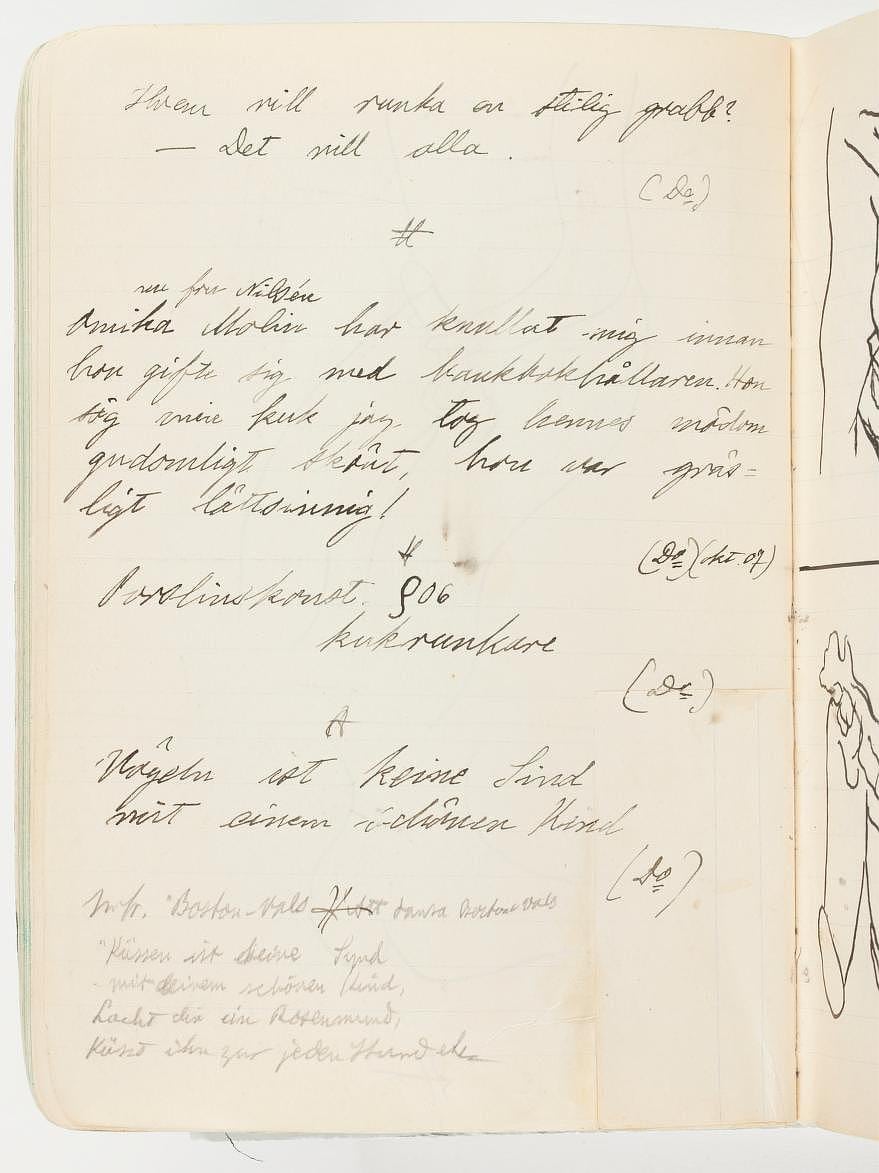 Hvem vill runka en stilig grabb?
— Det vill alla.
(Do)
nu fru Nilsén
Annika Molin har knullat mig innan
hon gifte sig med bankbokhållaren. Hon
sög min kuk jag tog hennes mödom
gudomligt skönt, hon var gräs=
ligt lättsinnig!
(Do) (okt. 07)
Porslinskonst. 06
kukrunkare
(Do)
Vögeln ist keine Sünd
mit einem schönen Kind
(Do)
"Boston-Vals dansa Boston Vals
"Küssen ist keine Synd
mit einem schönen Kind,
Lacht dir ein Rosenmund,
Küss ihn zur jeden Stund